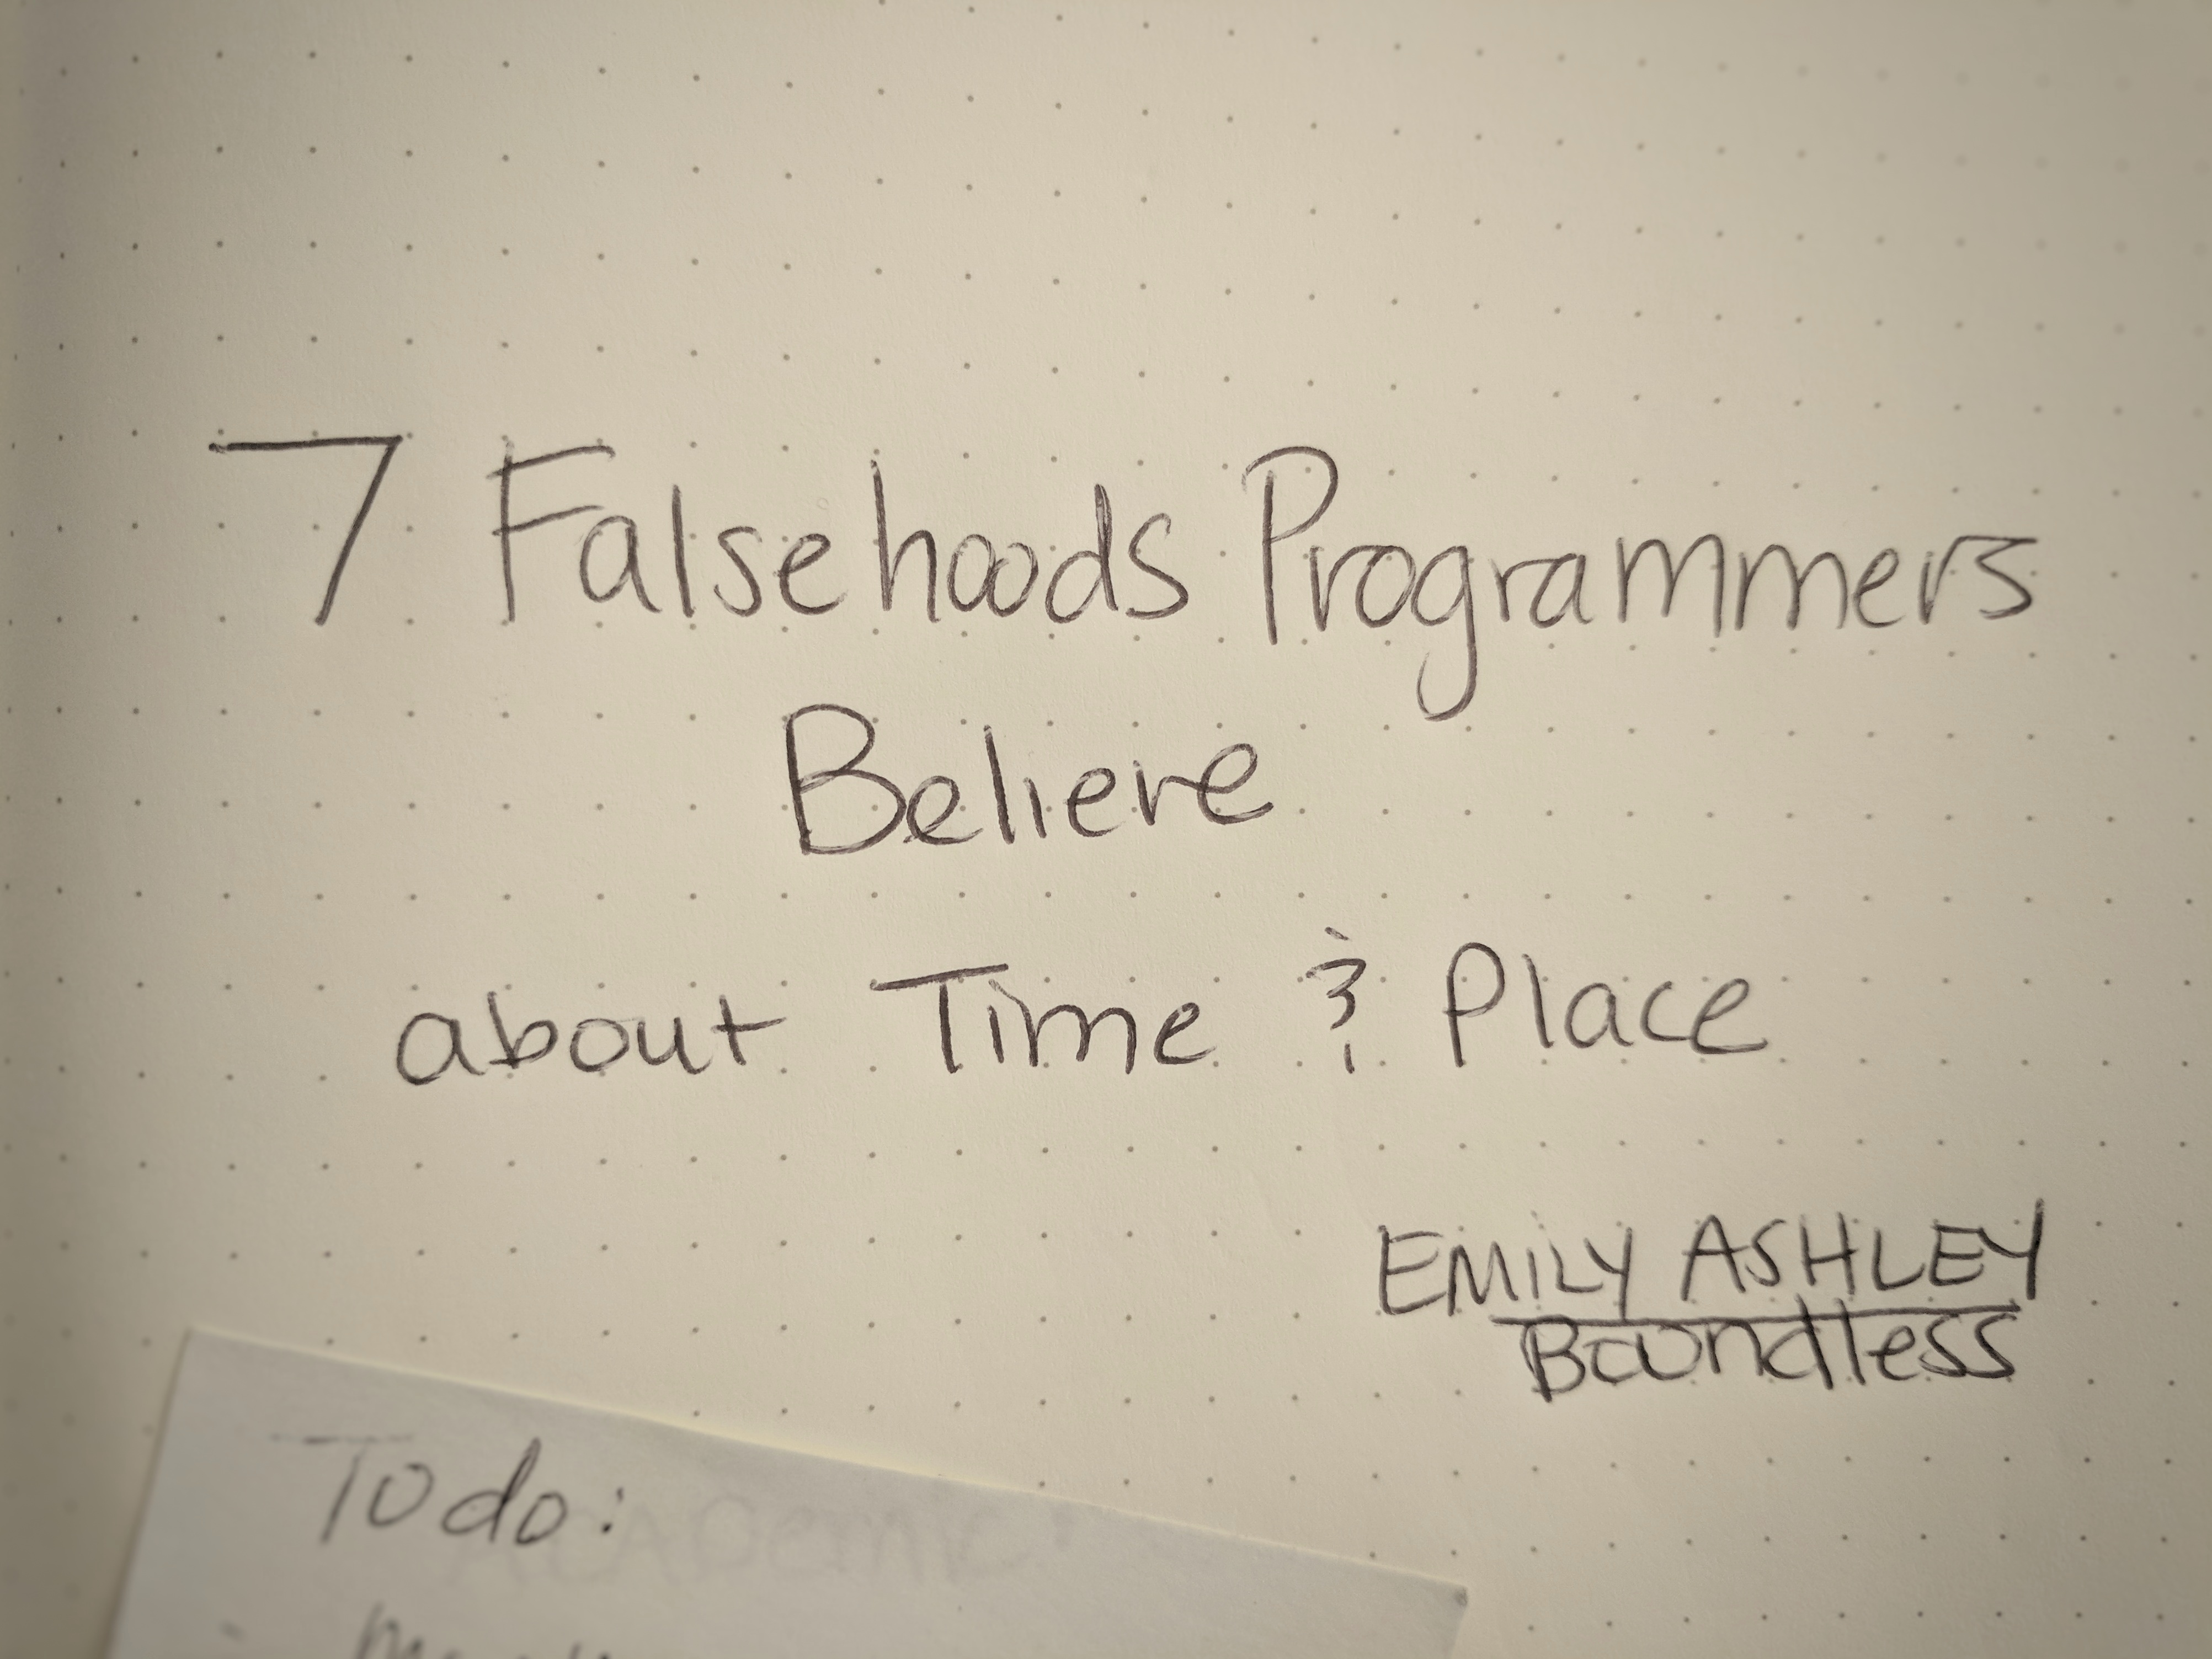 7 Falsehoods Programmers
Believe
about Time & Place
EMILY ASHLEY
Boundless
Todo: